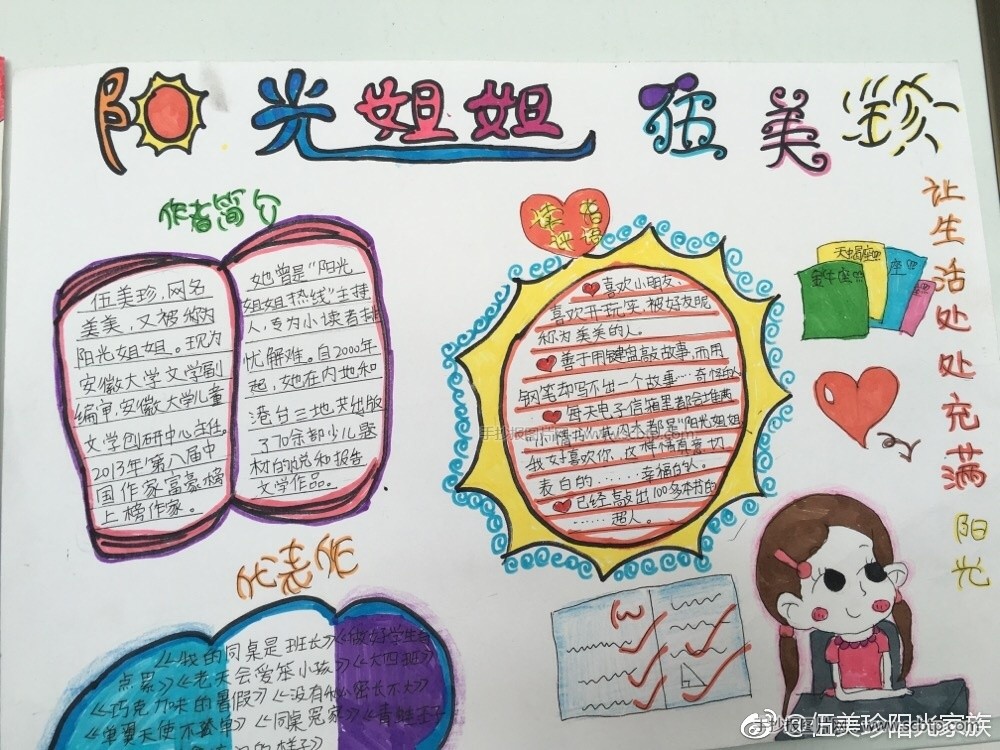 阳光姐姐 伍美珍
作者简介
伍美珍,网名
美美,又被称为
阳光姐姐。现为
安徽大学文学副
编审,安徽大学儿童
文学创研中心主任。
2013年第八届中
国作家富豪榜
上榜作家。
她曾是“阳光
姐姐热线”主持
人,专为小读者排
忧解难。自2000年
起,她在内地和
港台三地共出版
了70余部少儿题
材的小说和报告
文学作品。
读者
评语
喜欢小朋友、
喜欢开玩笑,被好友昵
称为美美的人。
善于用键盘敲故事,而用
钢笔却写不出一个故事……奇怪的人
每天电子信箱里都会堆满
小“情书”,其内容都是“阳光姐姐
我好喜欢你”这样情真意切
表白的……幸福的人。
已经敲出100多本书的
……超人。
天蝎座吧
金牛座吧
座吧
让生活处处充满阳光
代表作
《我的同桌是班长》《做好学生有
点累》《老天会爱笨小孩》《大四班》
《巧克力味的暑假》《没有秘密长不大》
《单翼天使不孤单》《同桌冤家》《青蛙王子
的样子》
手抄报图片
www.scbtp.com
@伍美珍阳光家族